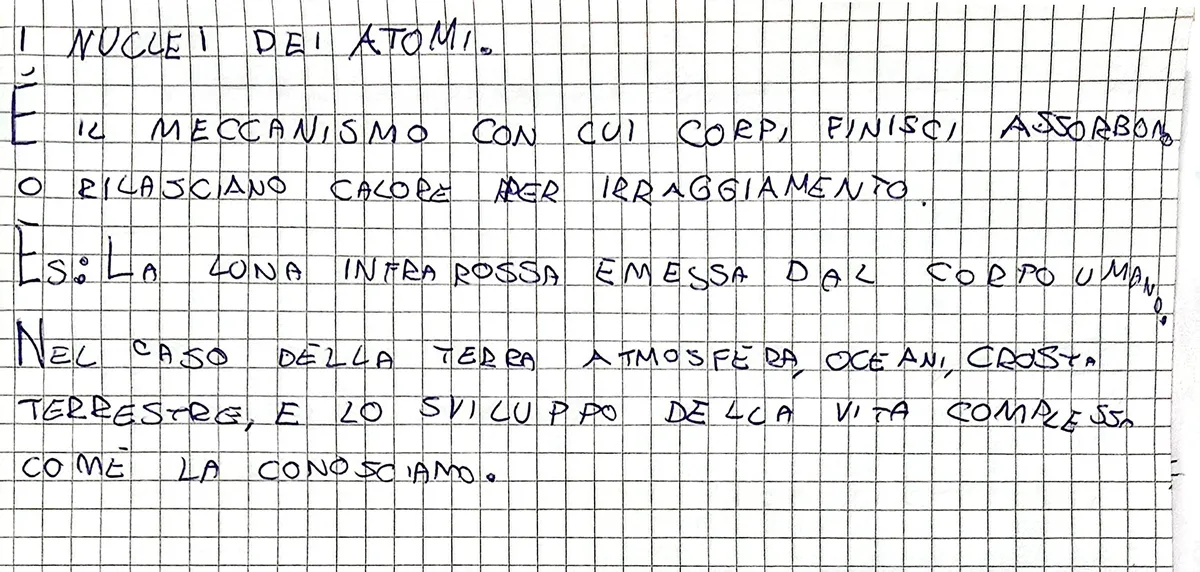 I NUCLEI DEI ATOMI.
È IL MECCANISMO CON CUI CORPI FINISCI ASSORBONO
O RILASCIANO CALORE PER IRRAGGIAMENTO.
ES: LA LONA INFRAROSSA EMESSA DAL CORPO UMANO.
NEL CASO DELLA TERRA ATMOSFERA, OCEANI, CROSTA
TERRESTRE, E LO SVILUPPO DELLA VITA COMPLESSA
COME LA CONOSCIAMO.